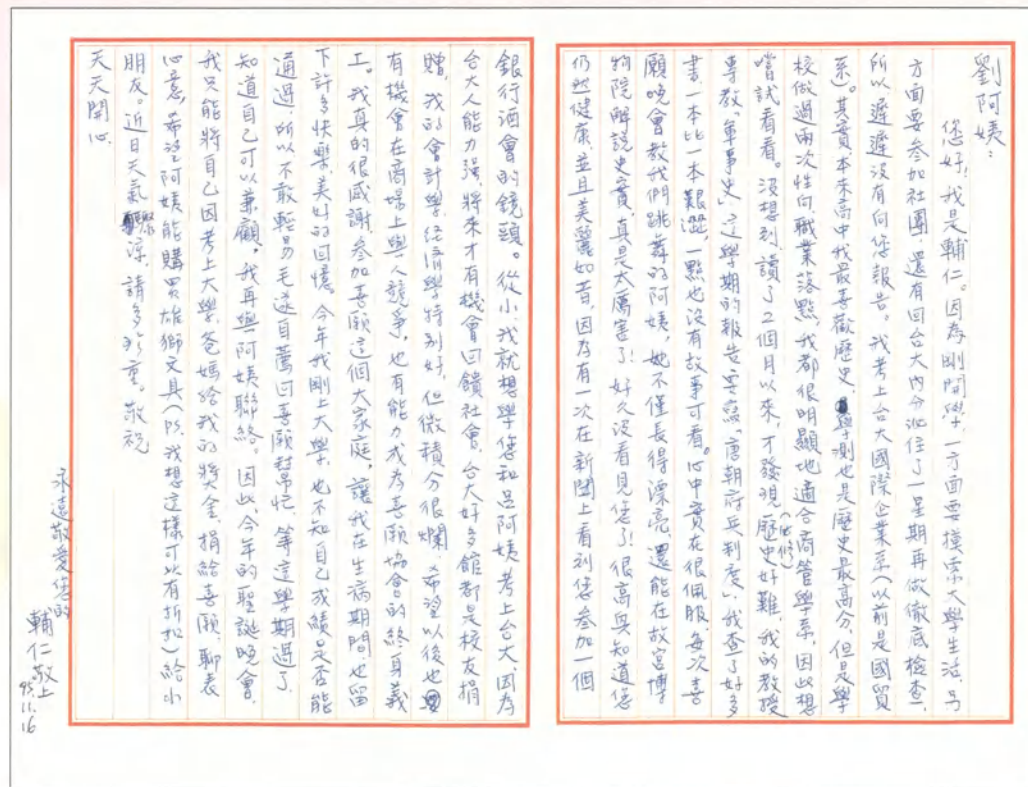 劉阿姨：
您好！我是輔仁。因為剛開學，一方面要摸索大學生活，另
方面要參加社團，還有回台大內分泌住了一星期再做徹底檢查，
所以遲遲沒有向您報告。我考上台大國際企業系(以前是國貿
系)。其實本來高中我最喜歡歷史，學測也是歷史最高分，但是學
校做過兩次性向職業落點，我都很明顯地適合商管學系，因此想
嚐試看看。沒想到，讀了2個月以來，才發現歷史(必修)好難，我的教授
專教「軍事史」，這學期的報告要寫「唐朝府兵制度」，我查了好多
書，一本比一本艱澀，一點也沒有故事可看。心中實在很佩服每次喜
願晚會教我們跳舞的阿姨，她不僅長得漂亮，還能在故宮博
物院解說史實，真是太厲害了！好久沒看見您了！很高興知道您
仍然健康，並且美麗如昔，因為有一次在新聞上看到您參加一個
銀行酒會的鏡頭。從小，我就想學您和呂阿姨考上台大，因為
台大人能力強，將來才有機會回饋社會，台大好多館都是校友捐
贈，我的會計學、經濟學特別好，但微積分很爛，希望以後也
有機會在商場上與人競爭，也有能力成為喜願協會的終身義
工。我真的很感謝，參加喜願這個大家庭，讓我在生病期間也留
下許多快樂美好的回憶。今年我剛上大學，也不知自己成績是否能
通過，所以不敢輕易毛遂自薦回喜願幫忙，等這學期過了，
知道自己可以兼顧，我再與阿姨聯絡。因此，今年的聖誕晚會，
我只能將自己因考上大學，爸媽給我的獎金，捐給喜願，聊表
心意，希望阿姨能購買雄獅文具(PS.我想這樣可以有折扣)給小
朋友。近日天氣驟涼，請多珍重。敬祝
天天開心
永遠敬愛您的
輔仁敬上
95.11.16